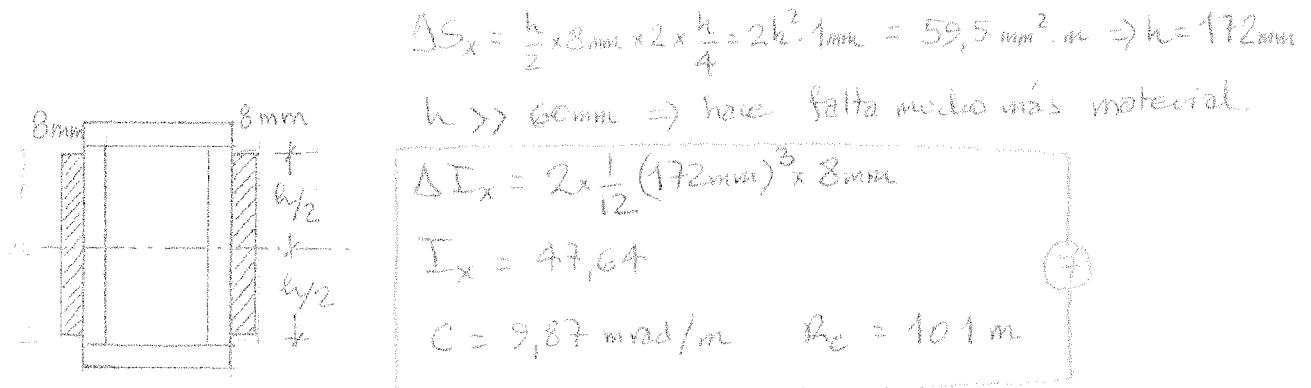 ΔSₓ = h/2 × 8mm × 2 × h/4 = 2h². 1mm = 59,5 mm². m ⇒ h = 172mm
h >> 60mm ⇒ hace falta mucho más material.
8mm 8mm
h/2
h/2
ΔIₓ = 2 × 1/12 (172mm)³ × 8mm
Iₓ = 47,64
C = 9,87 mrad/m R_c = 101 m
7